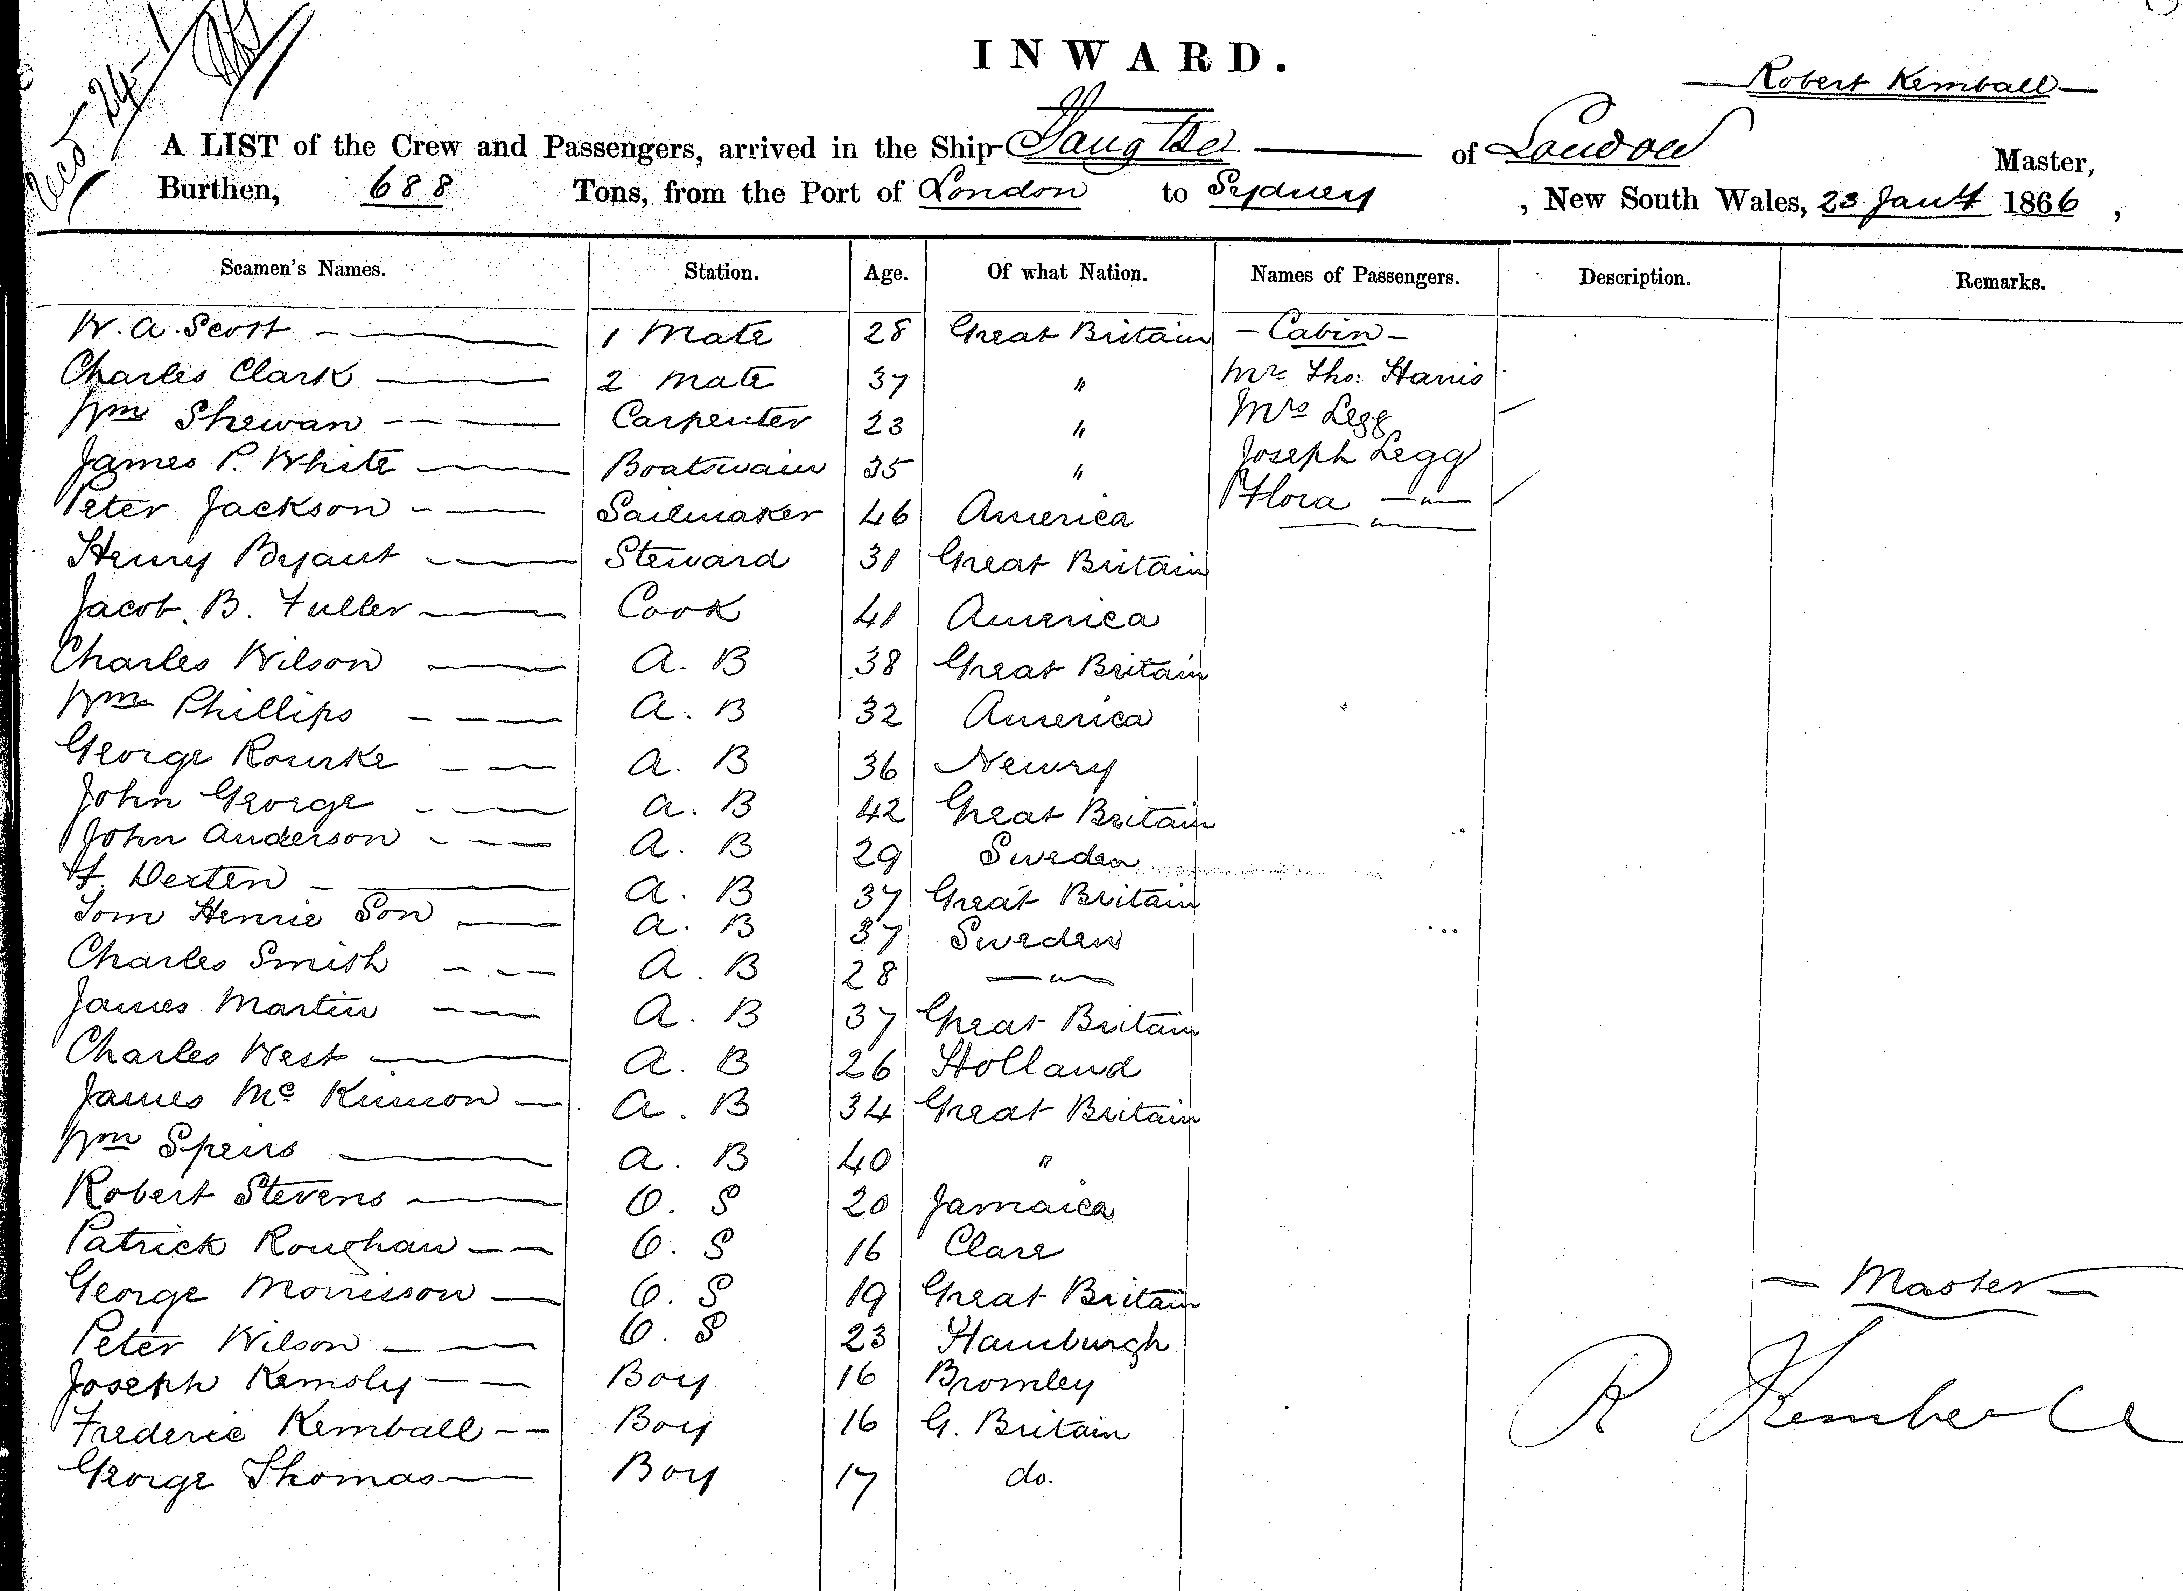 INWARD.
Robert Kemball
A LIST of the Crew and Passengers, arrived in the Ship Yangtsei of London Master,
Burthen, 688 Tons, from the Port of London to Sydney , New South Wales, 23 Jany 1866 ,
Seamen's Names. Station. Age. Of what Nation. Names of Passengers. Description. Remarks.
W. A. Scott 1 Mate 28 Great Britain - Cabin -
Charles Clark 2 Mate 37 " Mr Tho: Harris
Wm Shewan Carpenter 23 " Mrs Legg
James P. White Boatswain 35 " Joseph Legg
Peter Jackson Sailmaker 46 America Flora — " —
Henry Bryant Steward 31 Great Britain — " —
Jacob. B. Fuller Cook 41 America
Charles Wilson A. B 38 Great Britain
Wm Phillips A. B 32 America
George Rourke A. B 36 Newry
John George A. B 42 Great Britain
John Anderson A. B 29 Sweden
Derten A. B 37 Great Britain
Tom Henrie Son A. B 37 Sweden
Charles Smish A. B 28 — " —
James Martin A. B 37 Great Britain
Charles West A. B 26 Holland
James Mc Kinnon A. B 34 Great Britain
Wm Speirs A. B 40 "
Robert Stevens O. S 20 Jamaica
Patrick Roughan O. S 16 Clare
George Morrisson O. S 19 Great Britain
Peter Wilson O. S 23 Hamburgh
Joseph Kemsly Boy 16 Bromley
Frederic Kemball Boy 16 G. Britain
George Thomas Boy 17 do.
- Master -
R Kemball